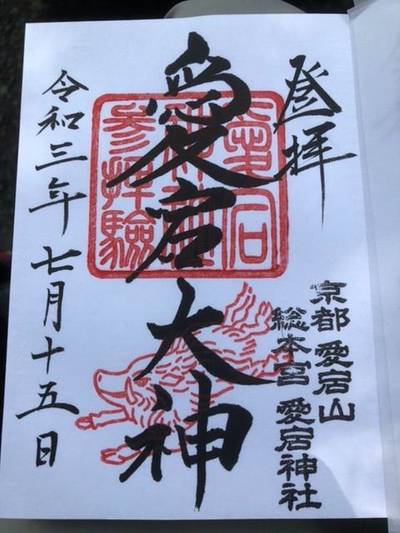 登拝
京都愛宕山
総本宮 愛宕神社
愛宕大神
愛宕
神社
参拝験
令和三年七月十五日